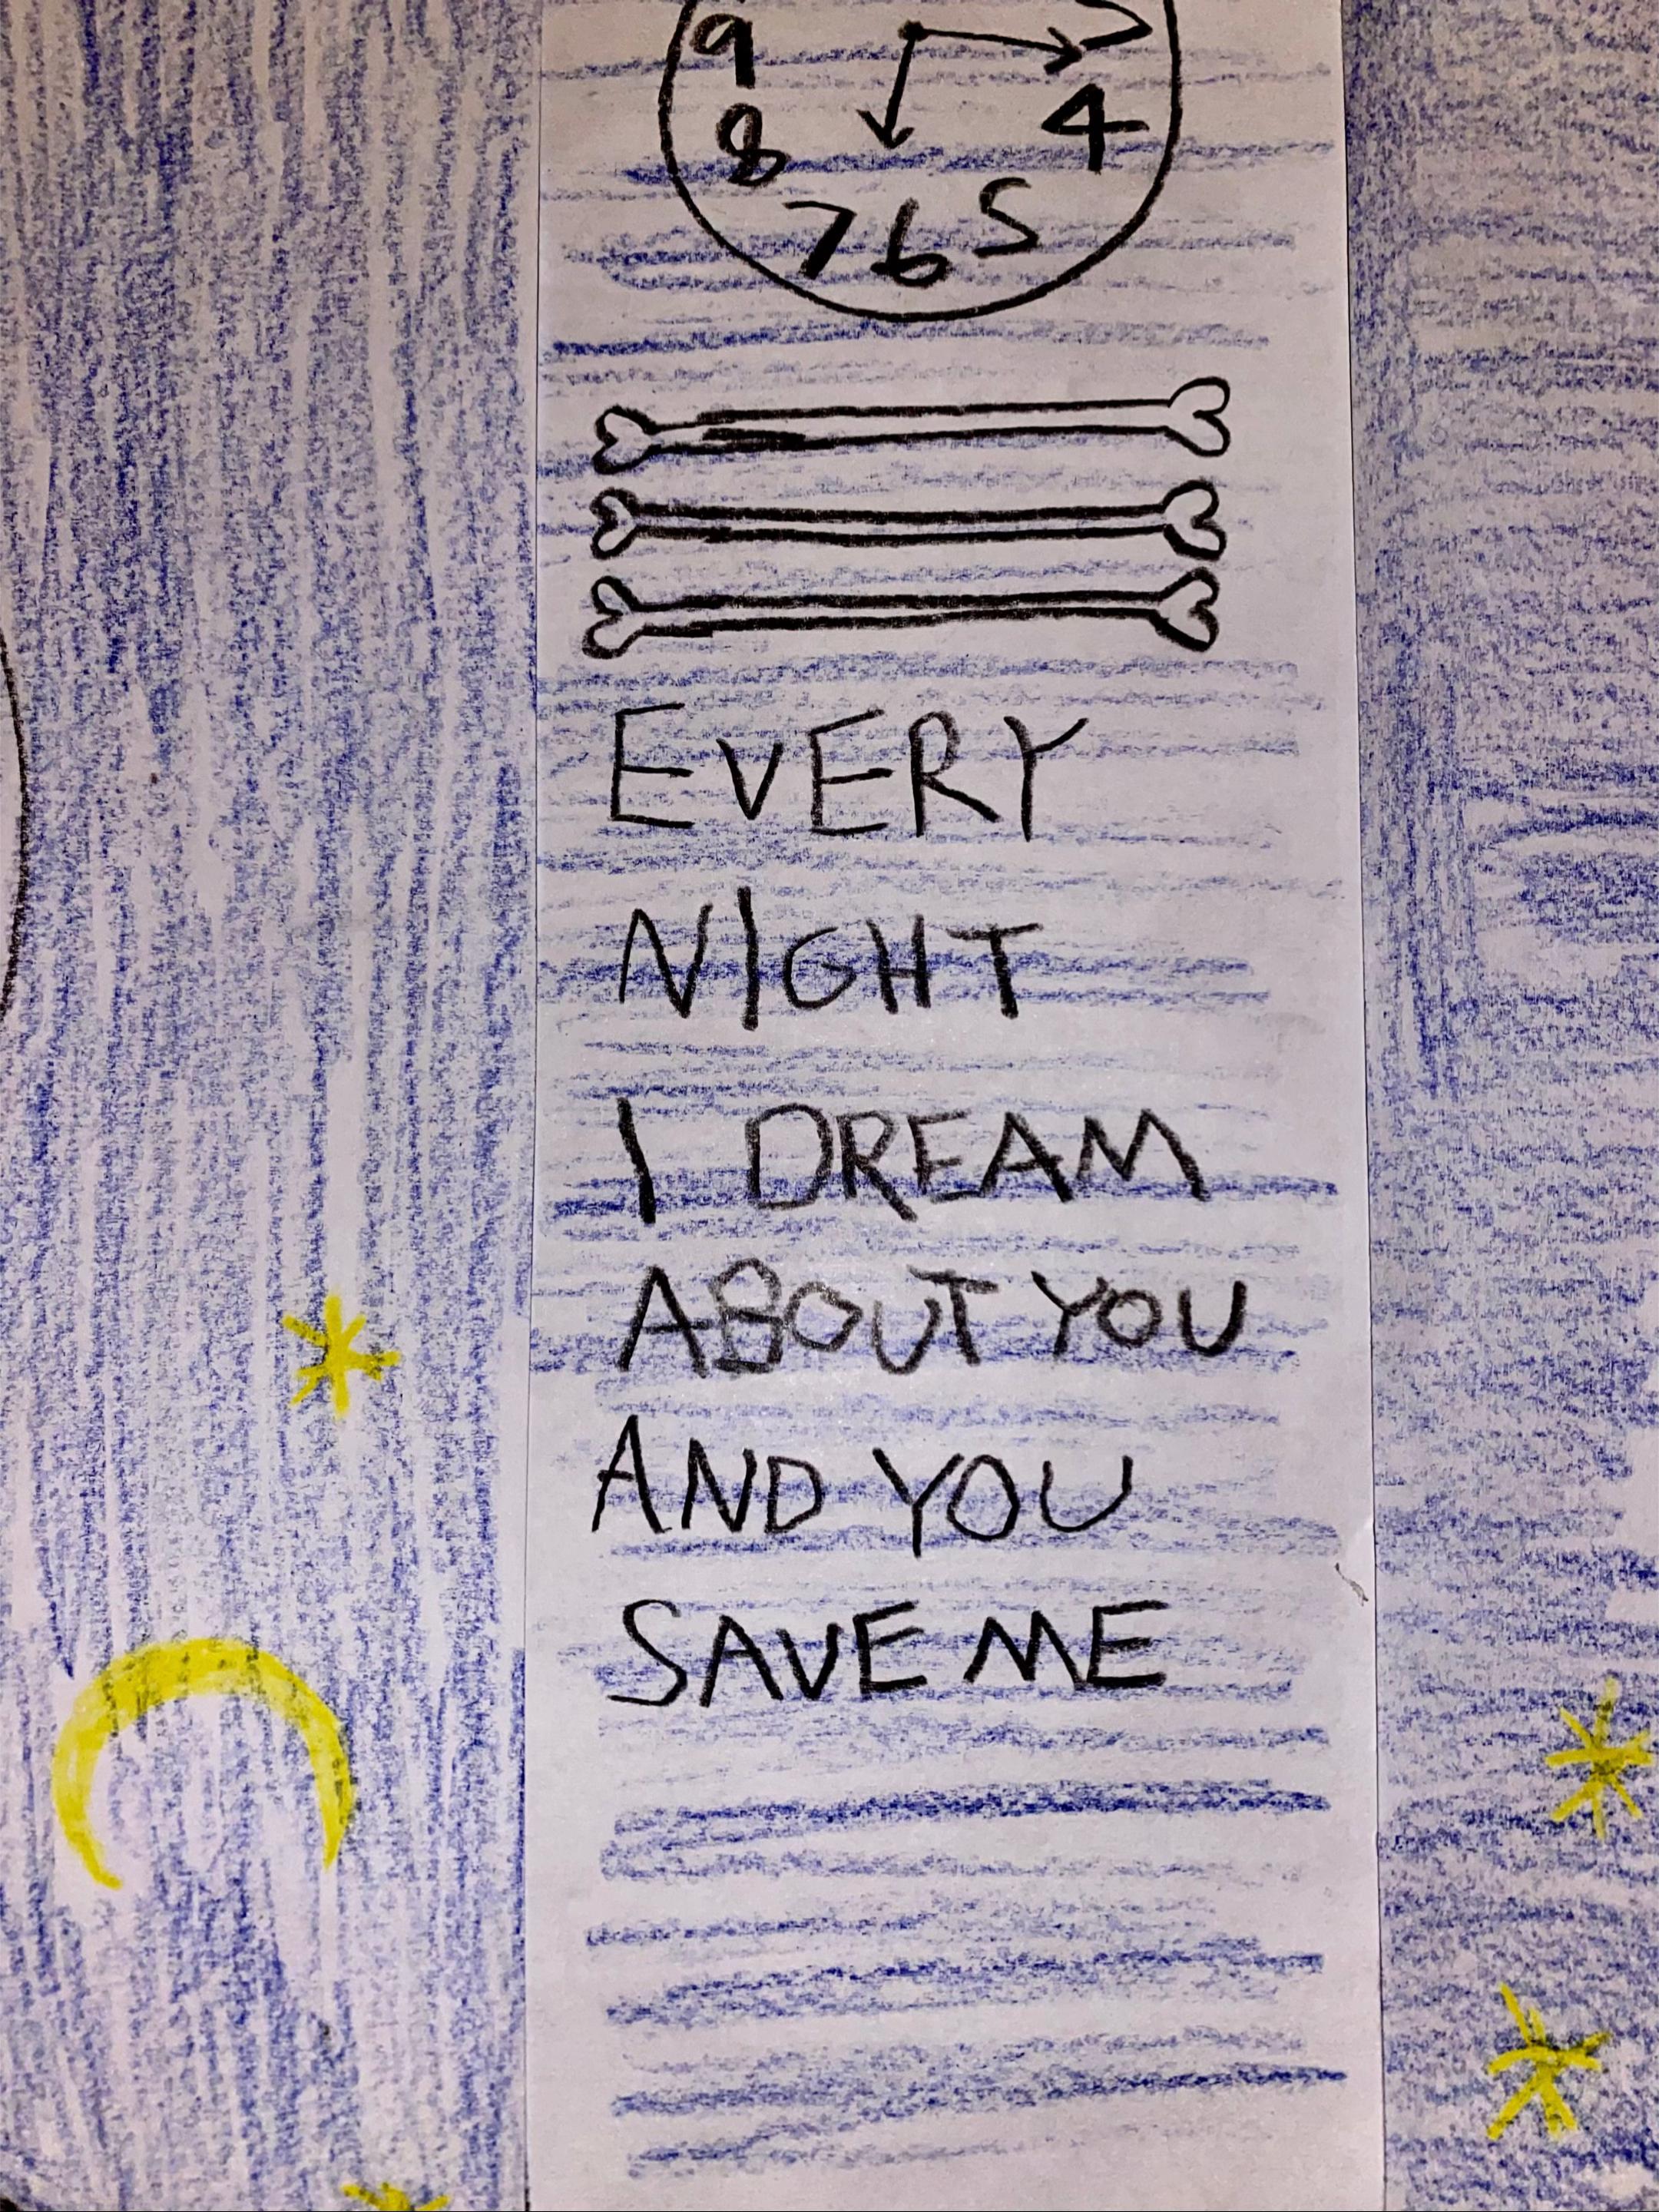 9 3
8 4
7 6 5
EVERY
NIGHT
I DREAM
ABOUT YOU
AND YOU
SAVE ME